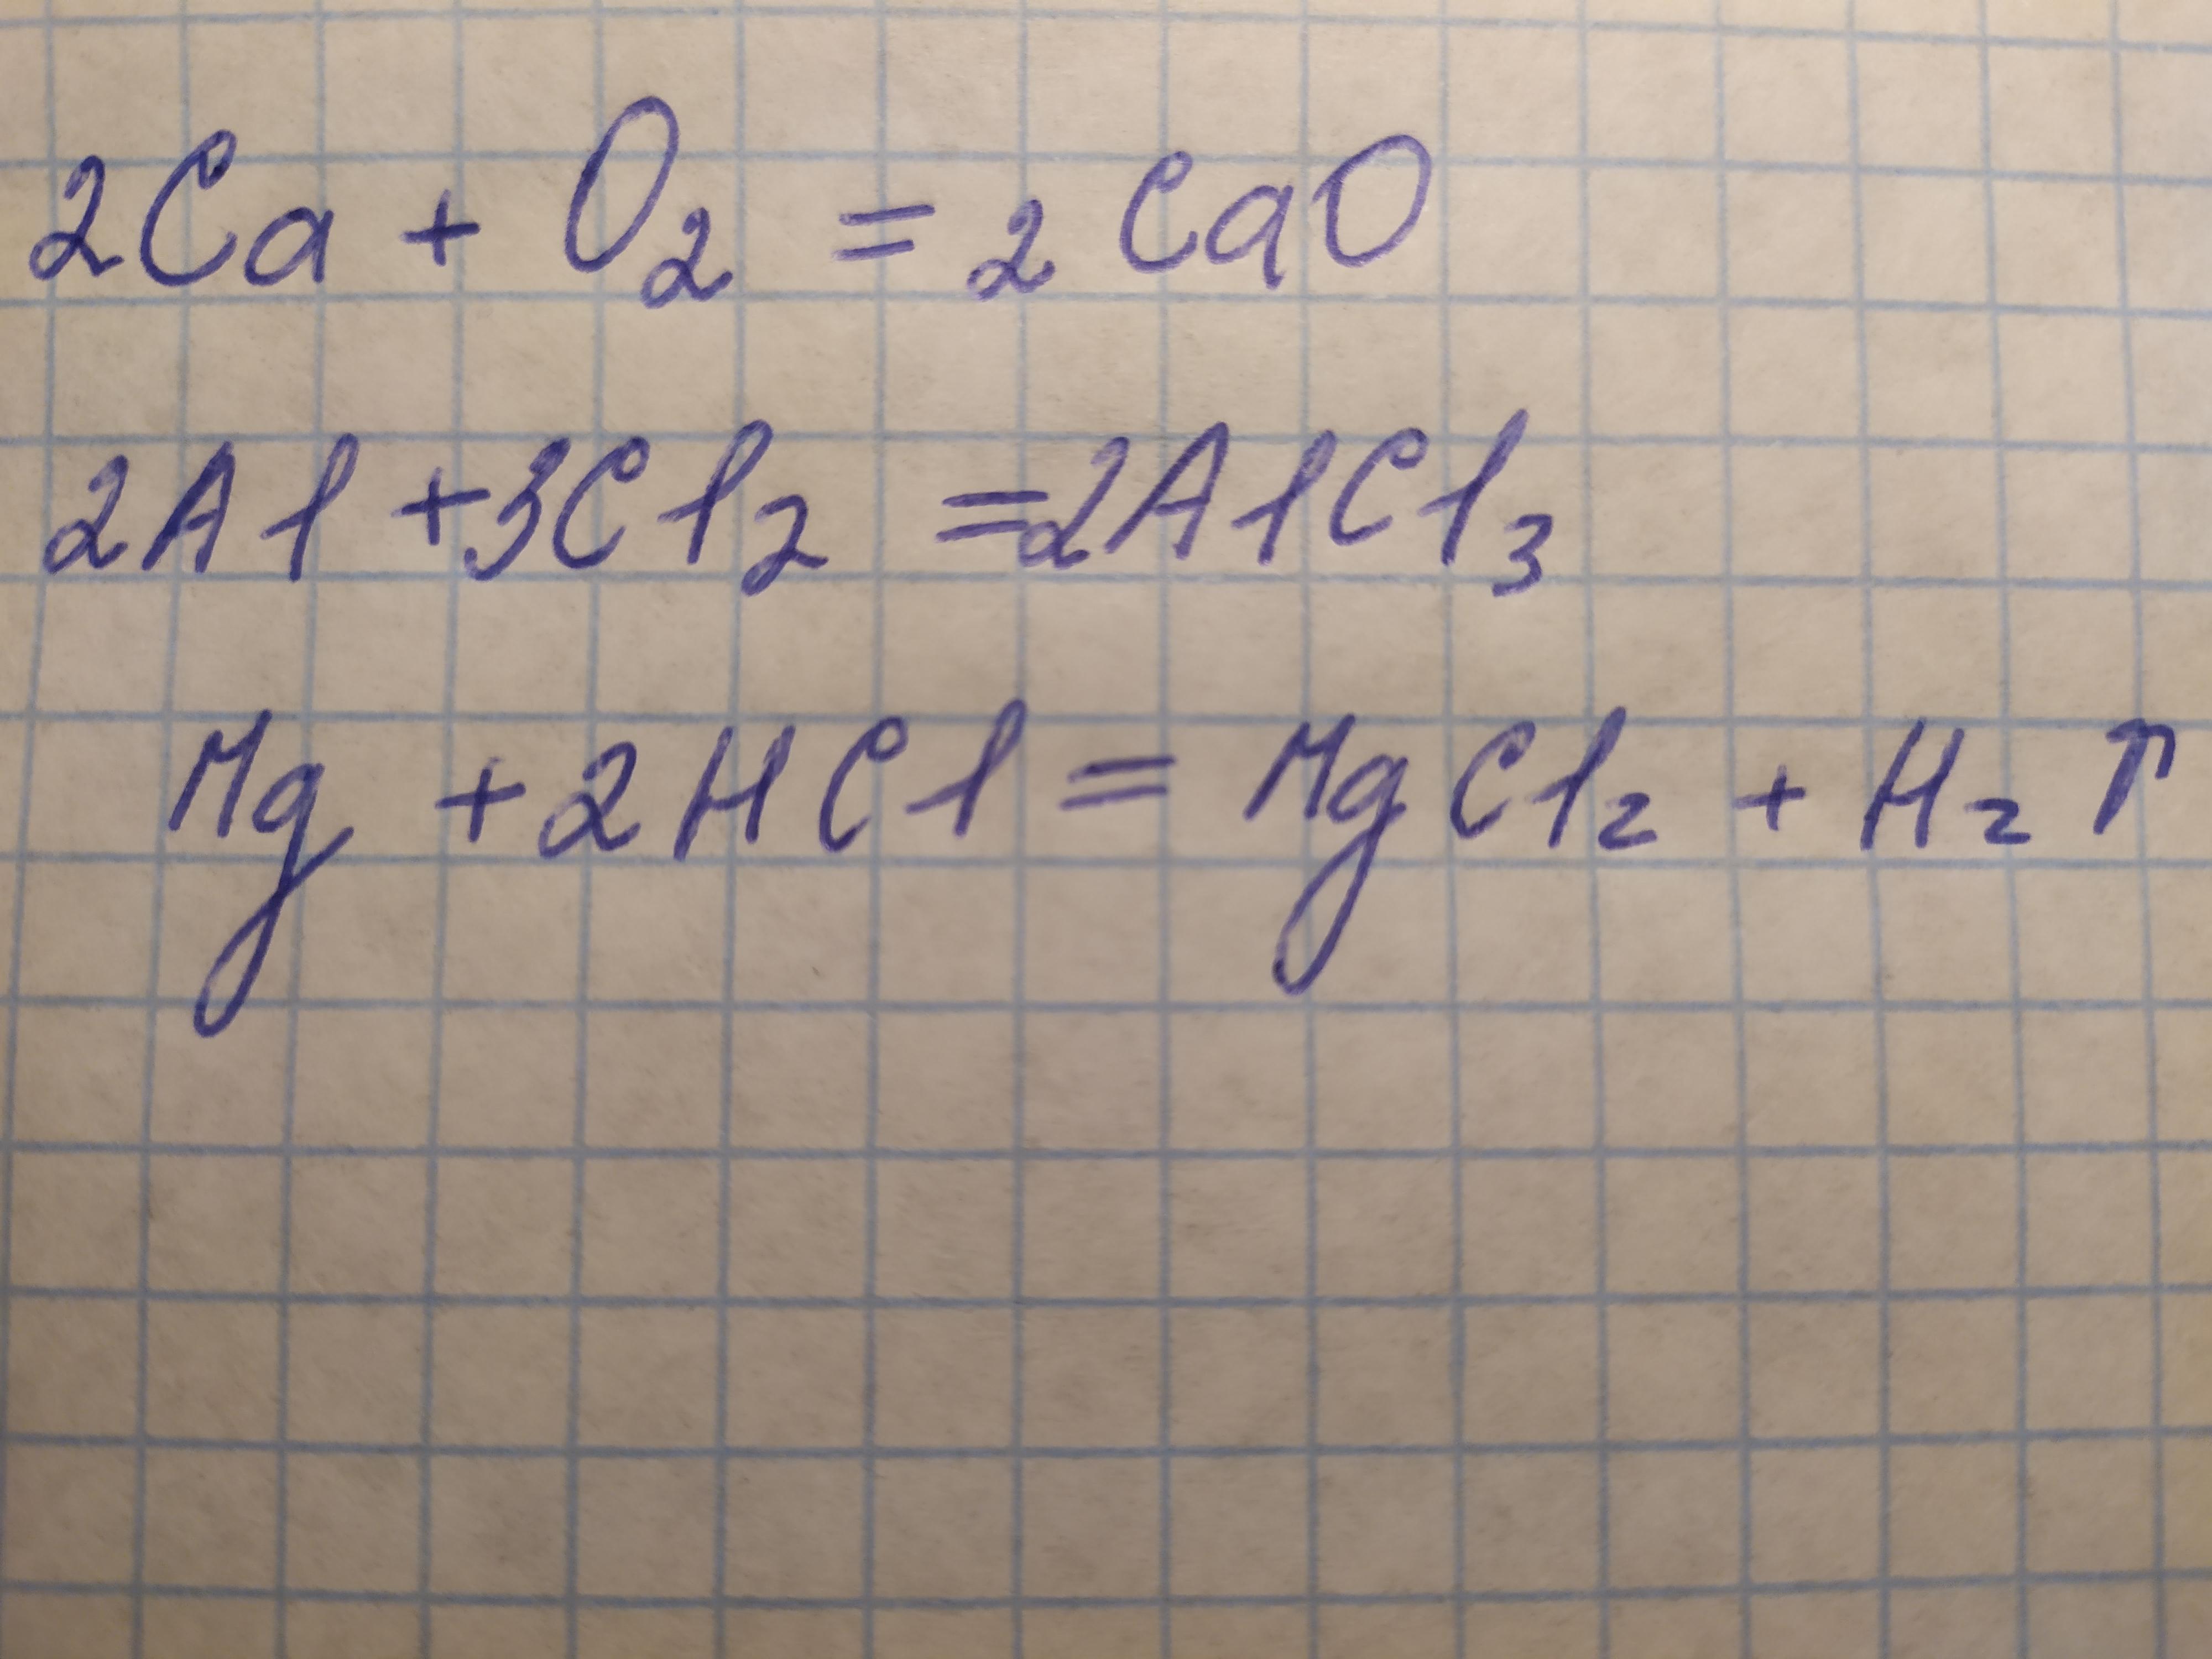 2Ca + O₂ = 2CaO
2Al + 3Cl₂ = 2AlCl₃
Mg + 2HCl = MgCl₂ + H₂↑